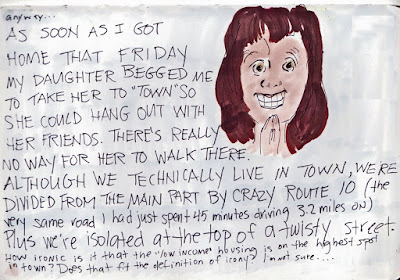 anyway...
AS SOON AS I GOT
HOME THAT FRIDAY
MY DAUGHTER BEGGED ME
TO TAKE HER TO "TOWN" SO
SHE COULD HANG OUT WITH
HER FRIENDS. THERE'S REALLY
NO WAY FOR HER TO WALK THERE.
ALTHOUGH WE TECHNICALLY LIVE IN TOWN, WE'RE
DIVIDED FROM THE MAIN PART BY CRAZY ROUTE 10 (the
very same road I had just spent 45 minutes driving 3.2 miles on)
Plus we're isolated at the top of a twisty street.
How ironic is it that the low income housing is on the highest spot
in town? Does that fit the definition of irony? I'm not sure....